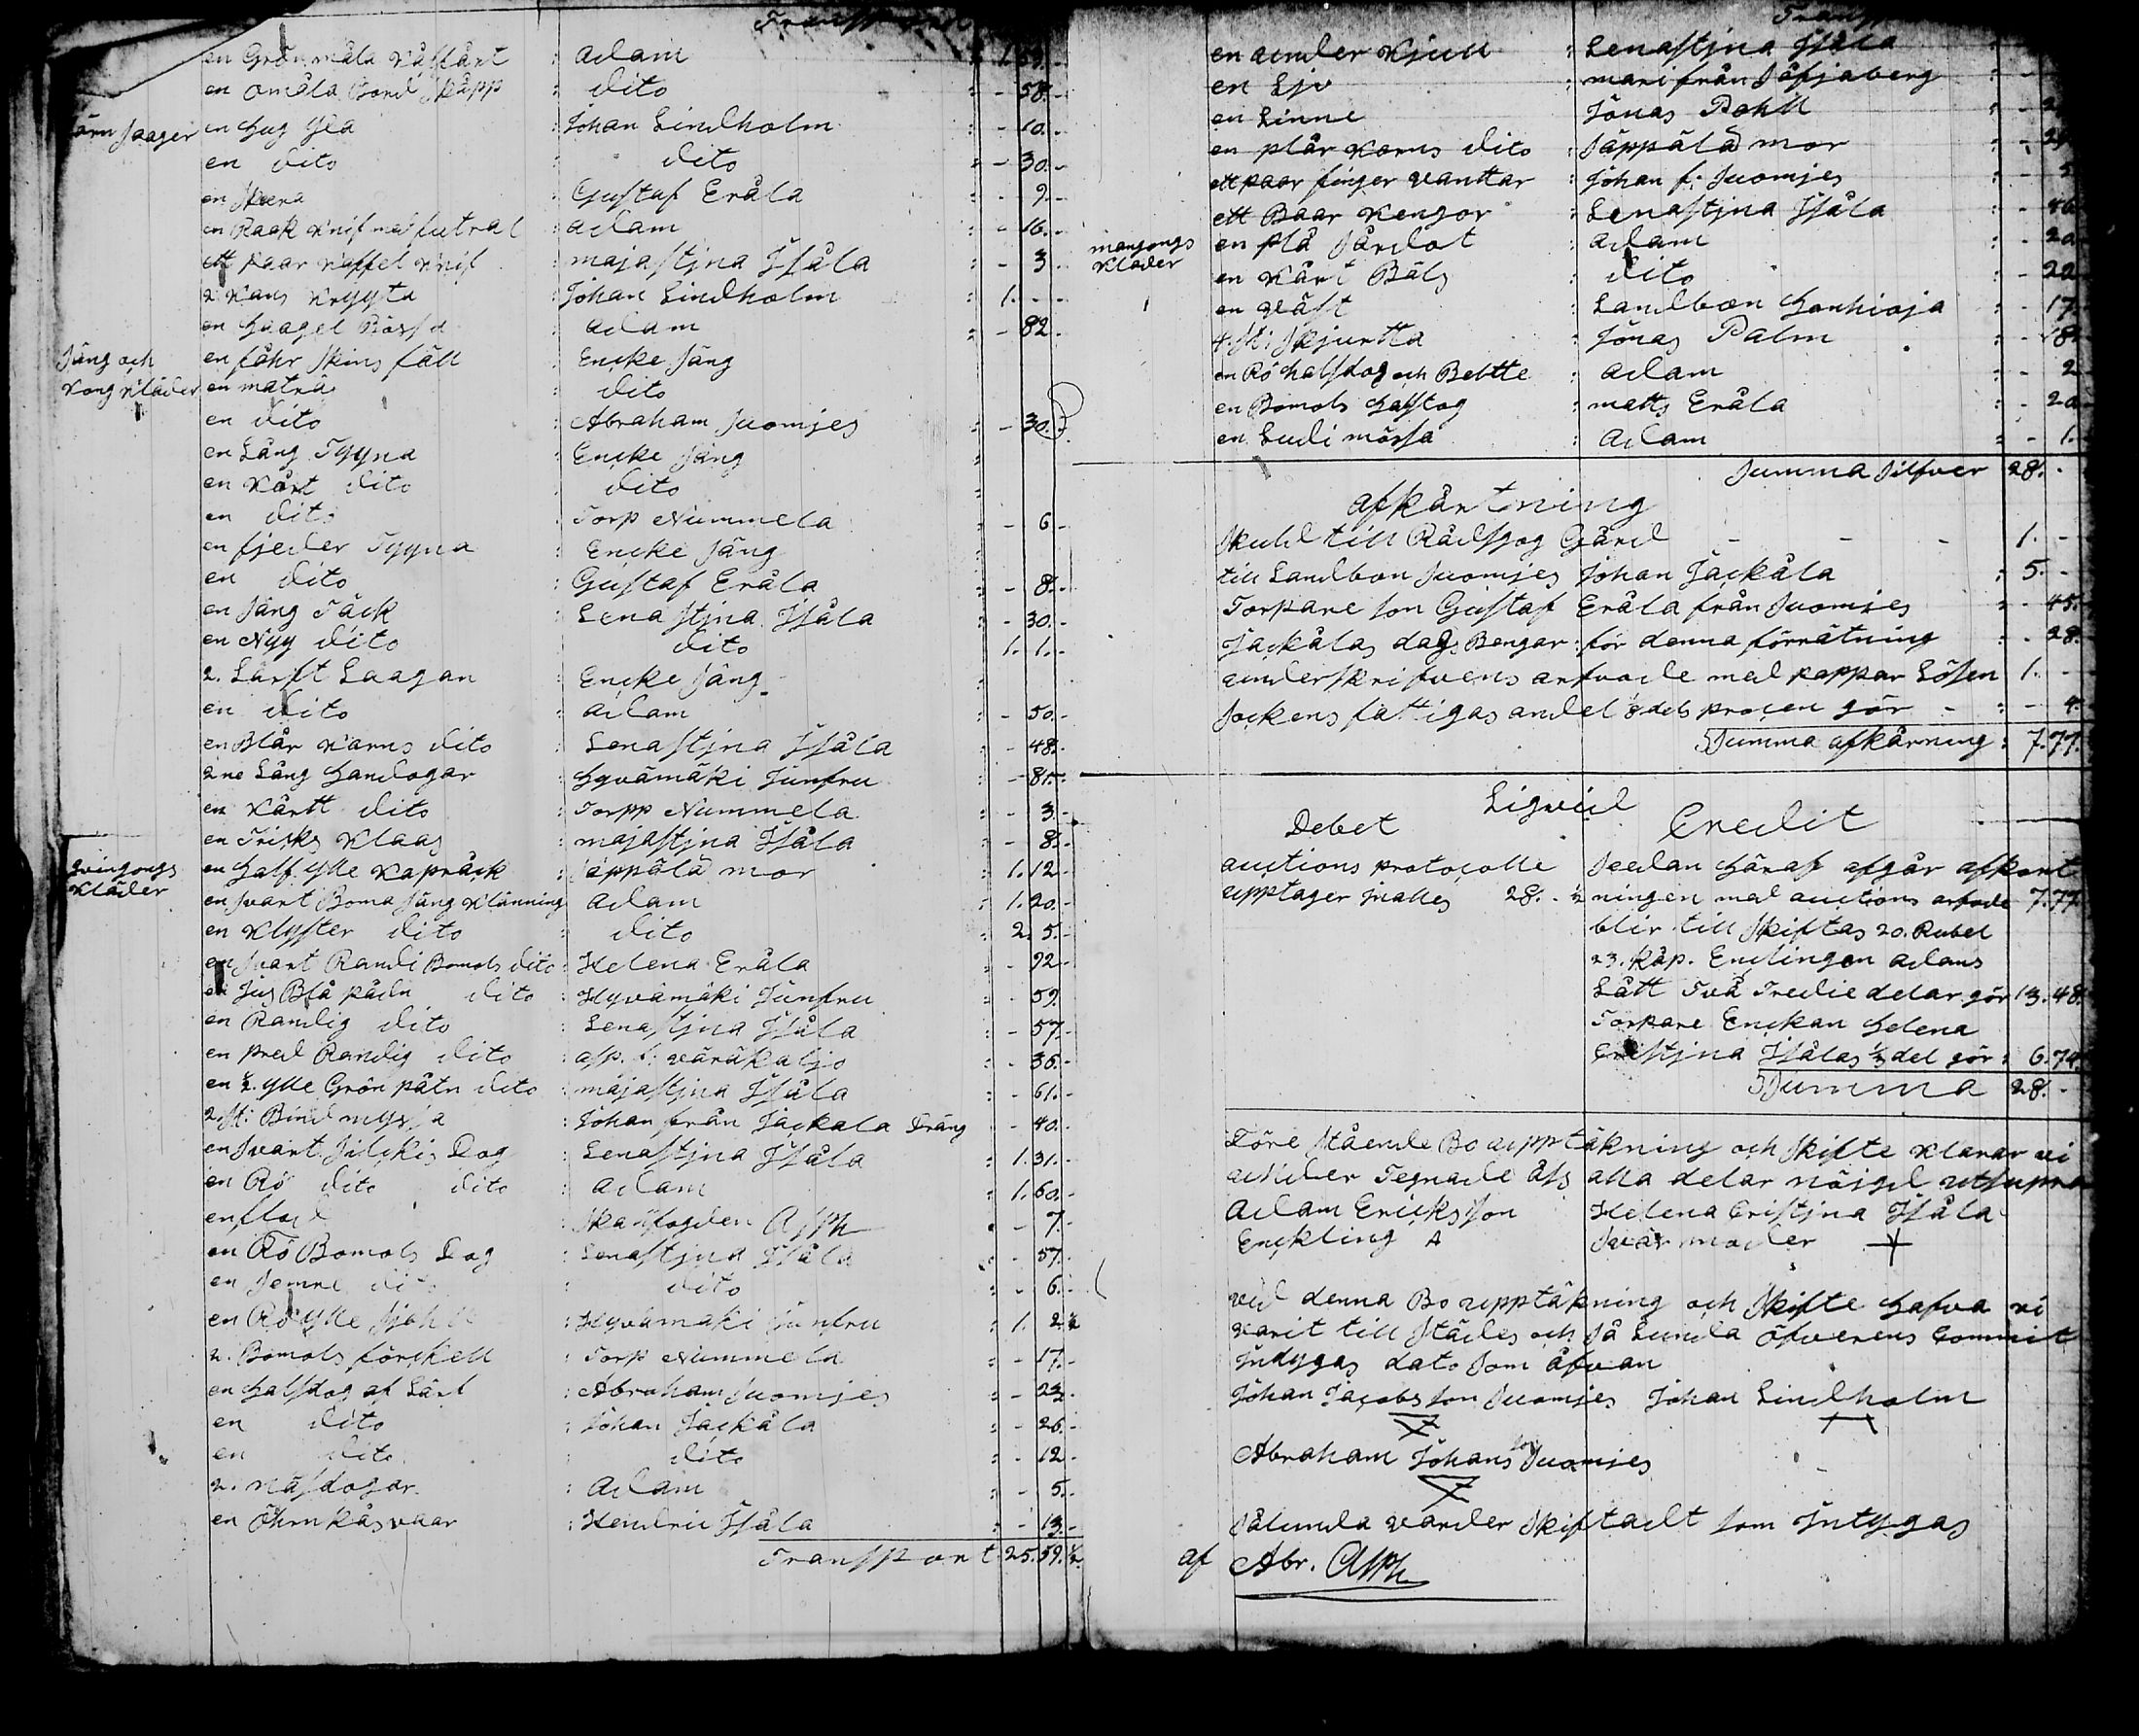 Transport
en Grön måla Kåffärt : Adam : 1.69.-
en omåla Bord Skåpp : dito : - 58.-
Järn saager en Hug Yxa : Johan Lindholm : - 10.-
en dito : dito : - 30.-
en Skära : Gustaf Eråla : - 9.-
en Raak Knif med futral : Adam : - 16.-
ett paar Kaffel Knif : majastjna Jsåla : - 3.-
2 Kans Krygta : Johan Lindholm : 1. - -
en Haagel Bössa : Adam : - 82.-
Säng och en fåhr Skins fäll : Encke Säng
Kong Kläder en matras : dito
en dito : Abraham Suomjes : - 30.-
en Lång Tyyna : Encke Säng :
en Kårt dito : dito :
en dito : Torp Nummela : - 6.-
en fjeder Tyyna : Encke Säng :
en dito : Gustaf Eråla : - 8.-
en Säng Täck : Lena Stjna Jsåla : - 30.-
en Nyy dito : dito : 1. 1.-
2. Lärft Laagan : Encke Säng :
en dito : Adam : - 50.-
en Blår Karns dito : Lenastjna Jsåla : - 48.-
2ne Lång Handogar : Hyvämäki Junfru : - 81.-
en Kårtt dito : Torpp Nummela : - 3.-
en Trisks Klaas : majastjna Jsåla : - 8.-
Qvingongs en Half ylle Kapråck : Säppälä mor : 1.12.-
Kläder
en Svart Boma Säng Klänning : Adam : 1.20.-
en Klyster dito : dito : 2. 5.-
en Svart Randi Bomols dito : Helena Eråla : - 92.-
en Jus Blå pådn dito : Hyvämäki Junfru : - 59.
en Randig dito : Lenastjna Jsåla : - 57.-
en pred Randig dito : asp. f: väräkaljo : - 36.-
en ½ ylle Grön påtn dito : majastjna Jsåla : - 61.-
2 St: Bindmyssa : Johan från Jackala Dräng - 40.-
en Svart Silckis Dog : Lenastjna Jsåla : 1.31.-
en Rö dito dito : Adam : 1.60.-
en flad : Skanfogden Asph - 7.
en Rö Bomols Dog : Lenastjna Jsåla - 57.-
en Semre dito : dito : - 6.-
en Rö ylle Sjohl : Hyvämäki Junfru : 1. 2½
2. Bomols förskell : Torp Nummela : - 17.-
en Halsdog af Lärf : Abraham Suomjes : - 23.-
en dito : Johan Jackåla : - 26.-
en dito : dito : - 12.-
2. näsdogar : Adam : - 5.-
en Öhrnkåsvaar : Hendric Jsåla : - 13.-
Transport 25.59.½
en under Kjull : Lenastjna Jsåla :
en Ljv : mari från Såfjaberg : -
en Linne Jonas Pohll : -
en plår Karns dito : Säppälä mor : -
ett paar finger vanttar : Johan f: Suomjes : -
ett Baar Kengor : Lenastjna Jsåla : -
mangongs en plå Sårdot : Adam : - 20
Kläder en Kårt Bäls : dito : - 22
en Väst : Landbon Hanhioja : - 17.
4. St: Skjurtta : Jonas Palm : - 8
en Rö halsdog och Bebtte : Adam : - 2
en Bomols Halstog : matts Eråla : - 20
en Ludi mössa : Adam : - 1.
Summa Silfver 28.-
afkårtning
Skuld till Rådsgog Gård - - - 1.-
till Landbon Suomjes Johan Jackåla : 5.-
Torpare son Gustaf Eråla från Suomjes : - 45.
Jackålas dags Bengar för denna förrätning : - 28.
underskrifvens arfvode med pappar Lösen 1. -
Sockens fattigas andel 8 dels procen gör - : - 4.
Summa afkårning : 7.77.
Liqvid
Debet Credit
auctions protocolle Seedan Häraf afgår afkort
upptager jnalles 28. - ½ ningen med auctions arfode 7.77
blir till Skiftas 20. Rubel
23. kåp. Enclingen Adams
Lått Två Tredie delar gör 13.48.
Torpare Enckan Helena
Cristjna Jsålas ⅓ del gör : 6.74.
Summa 28.-
Före Stående Bo upptäkning och Skifte Klarar vi
under Tegnade åss alla delar nöigd utsupra
Adam Ericksson Helena Cristjna Jsåla
Enckling A Svär moder +
vid denna Bo upptäkning och Skifte Hafva vi
varit till Städes och Så Lunda öfverens Commit
Jndygas dato Som åfvan
Johan Jacobs son Suomjes Johan Lindholm
Abraham Johans son Suomjes
Sålunda varder Skiftadt som Jntygas
af Abr. Asph